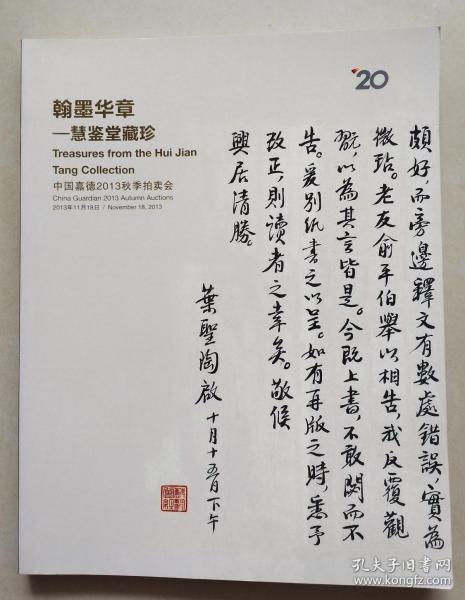 20
翰墨华章
—慧鉴堂藏珍
Treasures from the Hui Jian
Tang Collection
中国嘉德2013秋季拍卖会
China Guardian 2013 Autumn Auctions
2013年11月18日 / November 18, 2013
頗好，而旁邊釋文有數處錯誤，實爲
微玷。老友俞平伯舉以相告，我反覆觀
翫，以爲其言皆是。今既上書，不敢闕而不
告。爰别紙書之以呈。如有再版之時，悉予
改正，則讀者之幸矣。敬候
興居清勝。
葉聖陶啟 十月十五日下午
孔夫子旧书网
www.kongfz.com